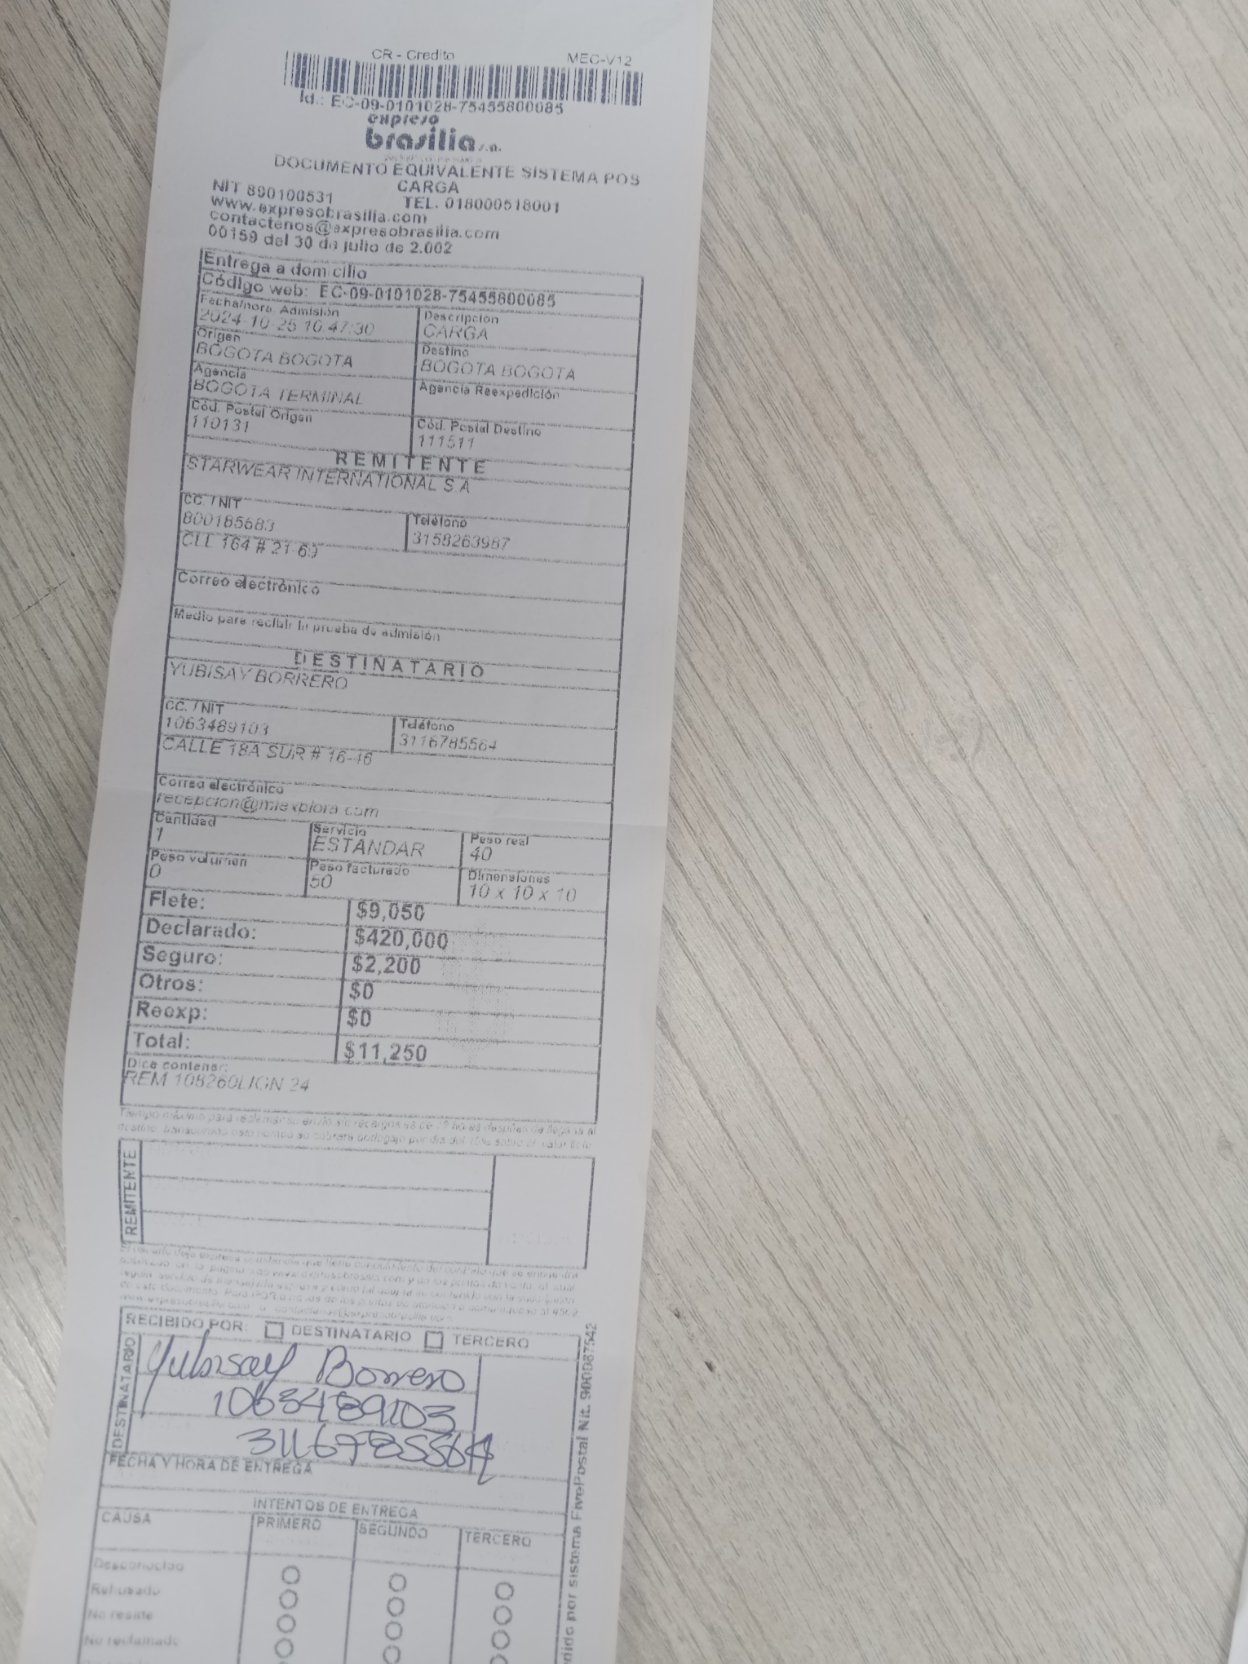 CR - Credito MEC-V12
Id.: EC-09-0101028-75455800085
expreso
brasilia s.a.
DOCUMENTO EQUIVALENTE SISTEMA POS
CARGA
NIT 890100531 TEL. 018000518001
www.expresobrasilia.com
contactenos@expresobrasilia.com
00159 del 30 de julio de 2.002
Entrega a domicilio
Código web: EC-09-0101028-75455800085
Fecha/hora Admisión Descripción
2024-10-25 10:47:30 CARGA
Origen Destino
BOGOTA BOGOTA BOGOTA BOGOTA
Agencia Agencia Reexpedición
BOGOTA TERMINAL
Cód. Postal Origen Cód. Postal Destino
110131 111511
REMITENTE
STARWEAR INTERNATIONAL S.A
CC. / NIT Teléfono
800185683 3158263987
CLL 164 # 21-69
Correo electrónico
Medio para recibir la prueba de admisión
DESTINATARIO
YUBISAY BORRERO
CC. / NIT Teléfono
1063489103 3116785564
CALLE 18A SUR # 16-46
Correo electrónico
recepcion@miexplora.com
Cantidad Servicio Peso real
1 ESTANDAR 40
Peso volumen Peso facturado Dimensiones
0 50 10 x 10 x 10
Flete: $9,050
Declarado: $420,000
Seguro: $2,200
Otros: $0
Reexp: $0
Total: $11,250
Dice contener:
REM 108260LIGN 24
REMITENTE
RECIBIDO POR: DESTINATARIO TERCERO
DESTINATARIO
Yubisay Borrero
1063489103
3116785564
FECHA Y HORA DE ENTREGA
INTENTOS DE ENTREGA
CAUSA PRIMERO SEGUNDO TERCERO
Desconocido
Rehusado
No reside
No reclamado
por sistema FivePostal Nit. 900087542